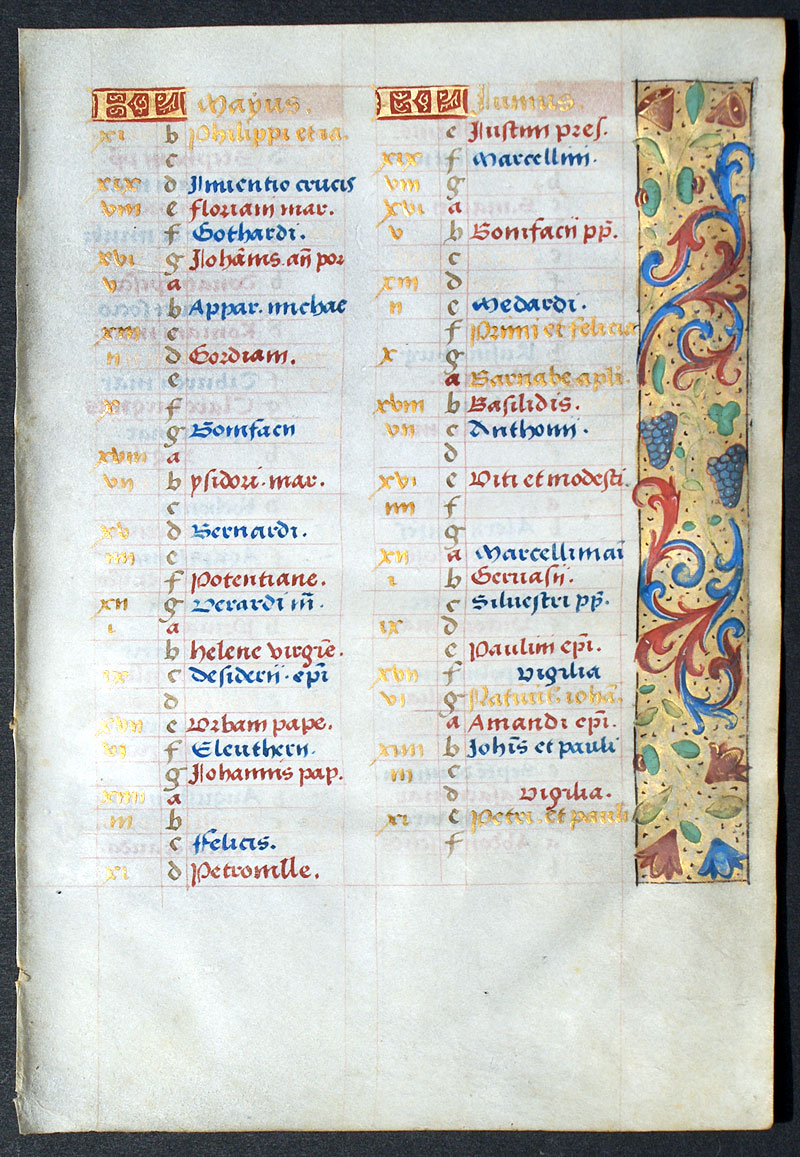 KL Mayus.
xi b Philippi et ia.
c
xix d Inuentio crucis
viii e floriani mar.
f Gothardi.
xvi g Iohānis. añ por
v a
b Appar. michae
xiii c
ii d Gordiani.
e
x f
g Bonifacii
xviii a
vii b ysidori. mar.
c
xv d Bernardi.
iiii e
f Potentiane.
xii g Verardi m̄.
i a
b helene virgīe.
ix c desiderii. epī
d
xvii e Vrbani pape.
vi f Eleutherii.
g Johannis pap.
xiiii a
iii b
c ffelicis.
xi d Petronille.
KL Iunius.
e Justini pres.
xix f Marcellini.
viii g
xvi a
v b Bonifacij pp̄.
c
xiii d
ii e Medardi.
f Primi et felicia
x g
a Barnabe apli.
xviii b Basilidis.
vii c Anthonij.
d
xvi e Viti et modesti.
iiii f
g
xii a Marcelli mar
i b Geruasij.
c Siluestri pp̄.
ix d
e Paulini epī.
xvii f vigilia
vi g Natiuit. iohā.
a Amandi epī.
xiiii b Johīs et pauli
iii c
d vigilia.
xi e Petri. et pauli
f